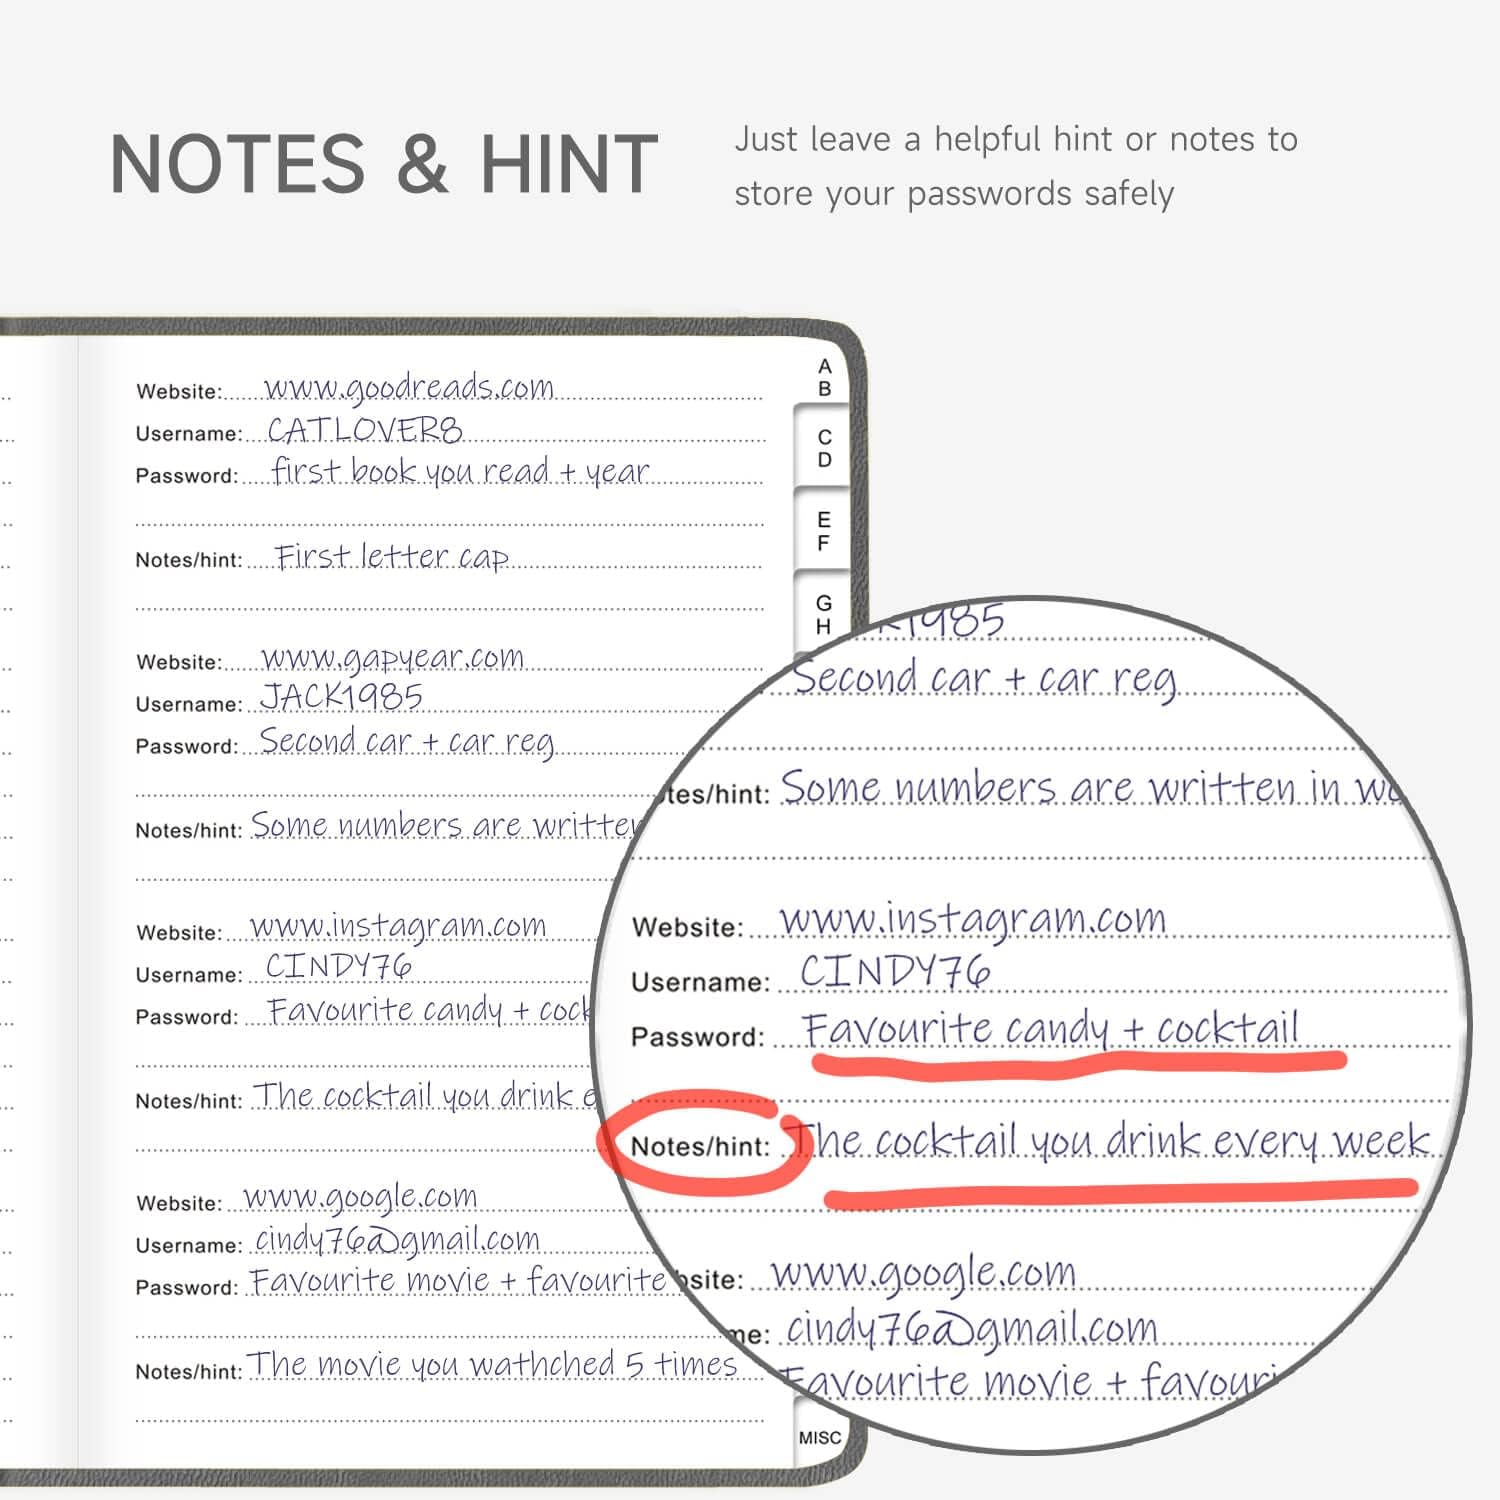 NOTES & HINT
Just leave a helpful hint or notes to
store your passwords safely
Website: www.goodreads.com
Username: CATLOVER8
Password: first book you read + year
Notes/hint: First letter cap
Website: www.gapyear.com
Username: JACK1985
Password: Second car + car reg
Notes/hint: Some numbers are written
Website: www.instagram.com
Username: CINDY76
Password: Favourite candy + cock
Notes/hint: The cocktail you drink e
Website: www.google.com
Username: cindy76@gmail.com
Password: Favourite movie + favourite
Notes/hint: The movie you wathched 5 times
A
B
C
D
E
F
G
H
MISC
K1985
Second car + car reg
tes/hint: Some numbers are written in wo
Website: www.instagram.com
Username: CINDY76
Password: Favourite candy + cocktail
Notes/hint: The cocktail you drink every week
bsite: www.google.com
me: cindy76@gmail.com
Favourite movie + favouri